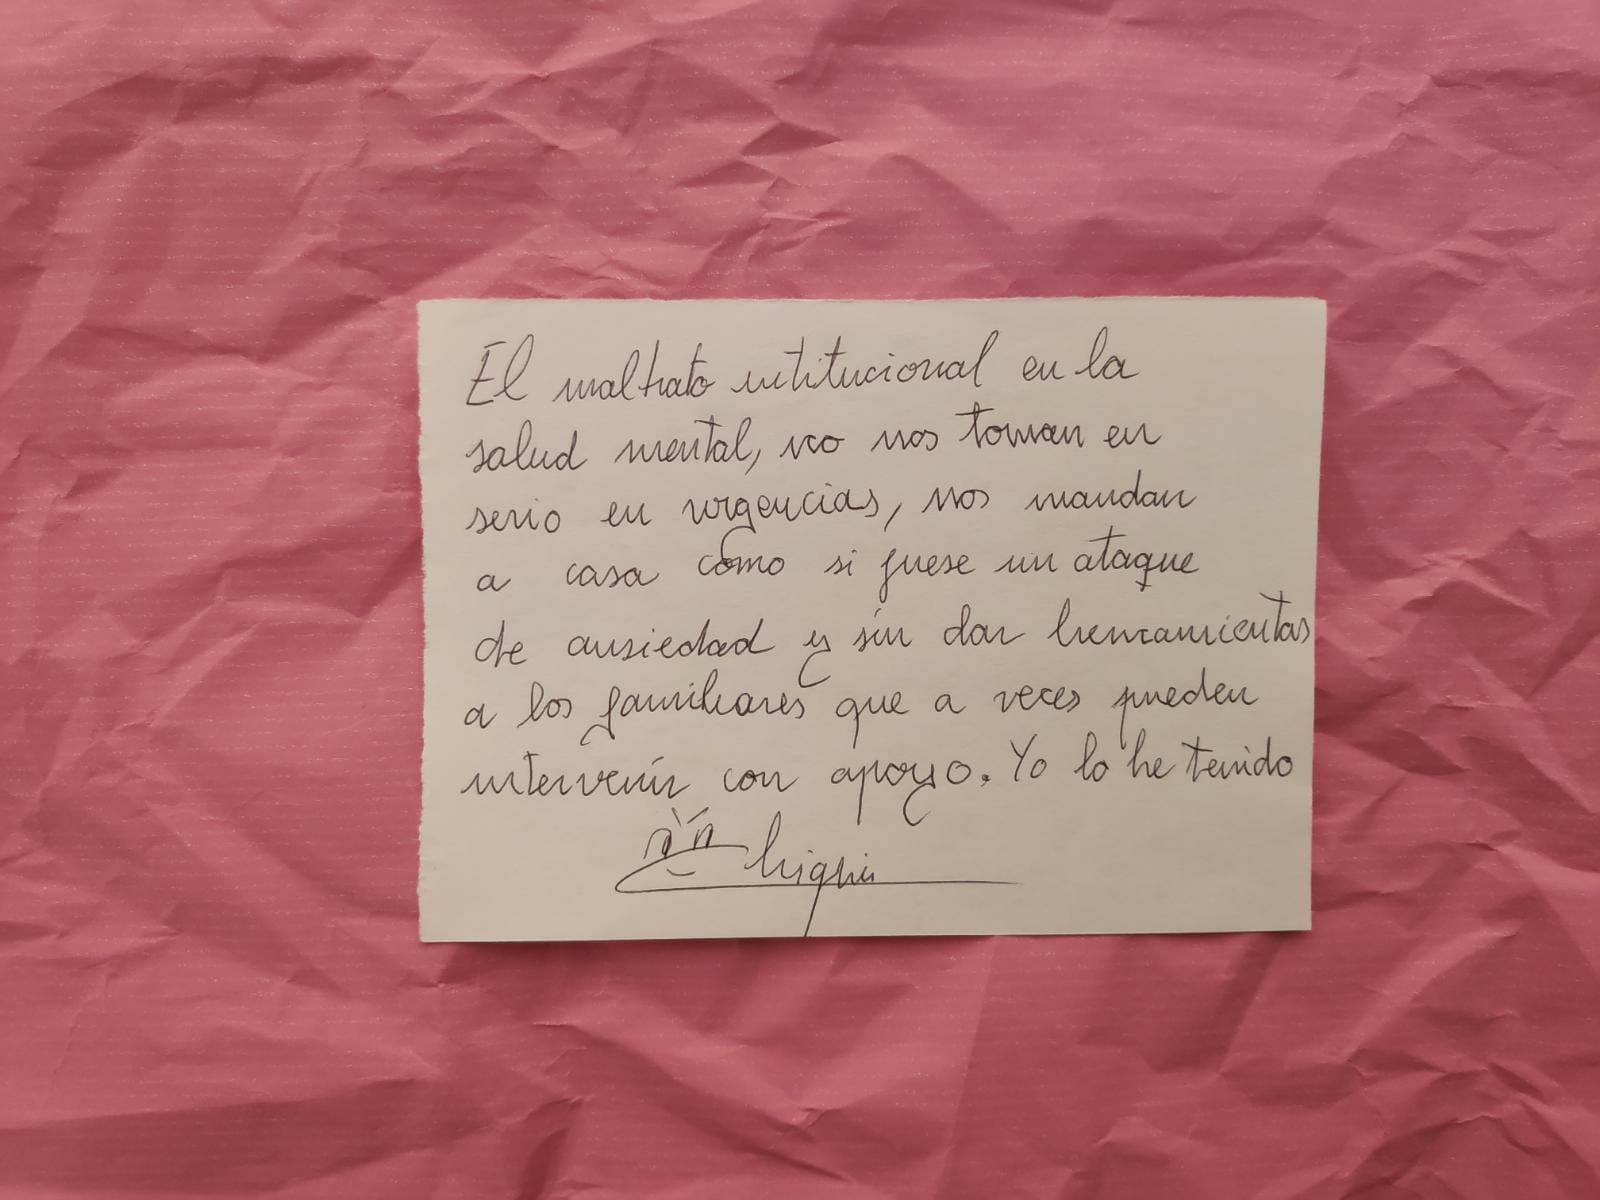 El maltrato intitucional en la
salud mental, no nos toman en
serio en urgencias, nos mandan
a casa como si fuese un ataque
de ansiedad y sin dar herramientas
a los familiares que a veces pueden
intervenir con apoyo. Yo lo he tenido